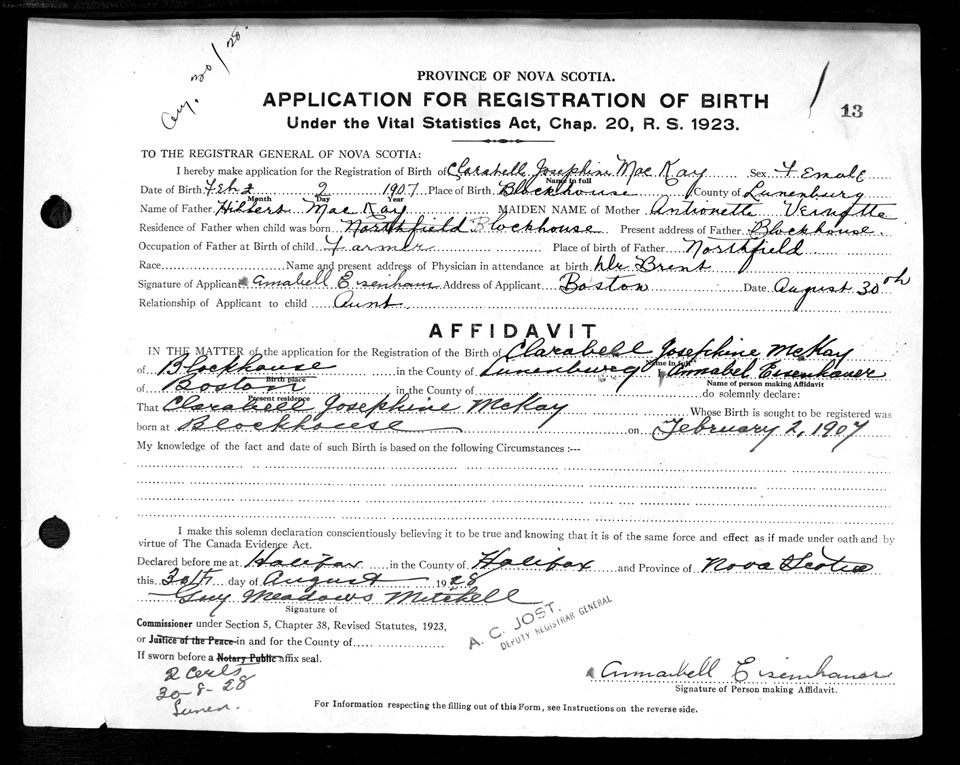 Aug. 30/28.
PROVINCE OF NOVA SCOTIA.
APPLICATION FOR REGISTRATION OF BIRTH
13
Under the Vital Statistics Act, Chap. 20, R. S. 1923.
TO THE REGISTRAR GENERAL OF NOVA SCOTIA:
I hereby make application for the Registration of Birth of Clarabell Josephine Mac Kay Sex Female
Name in full
Date of Birth Feb 2 2 1907 Place of Birth Blockhouse County of Lunenburg
Month Day Year
Name of Father Hilbert Mac Kay MAIDEN NAME of Mother Antionette
Residence of Father when child was born Northfield Blockhouse Present address of Father Blockhouse.
Occupation of Father at Birth of child Farmer Place of birth of Father Northfield
Race Name and present address of Physician in attendance at birth Dr Brent
Signature of Applicant Annabell Eisenhaur Address of Applicant Boston Date August 30th
Relationship of Applicant to child Aunt.
AFFIDAVIT
IN THE MATTER of the application for the Registration of the Birth of Clarabell Josephine McKay
Name in full
of Blockhouse in the County of Lunenburg I Annabel Eisenhauer
Birth place Name of person making Affidavit
of Boston in the County of do solemnly declare:
Present residence
That Clarabell Josephine McKay Whose Birth is sought to be registered was
born at Blockhouse on February 2, 1907
My knowledge of the fact and date of such Birth is based on the following Circumstances :--
I make this solemn declaration conscientiously believing it to be true and knowing that it is of the same force and effect as if made under oath and by
virtue of The Canada Evidence Act.
Declared before me at Halifax in the County of Halifax and Province of Nova Scotia
this 30th day of August 1928
Guy Meadows Mitchell
Signature of
A. C. JOST,
DEPUTY REGISTRAR GENERAL
Commissioner under Section 5, Chapter 38, Revised Statutes, 1923,
or Justice of the Peace in and for the County of
If sworn before a Notary Public affix seal.
2 Certs
30-8-28
Lunen.
Annabell Eisenhauer
Signature of Person making Affidavit.
For Information respecting the filling out of this Form, see Instructions on the reverse side.